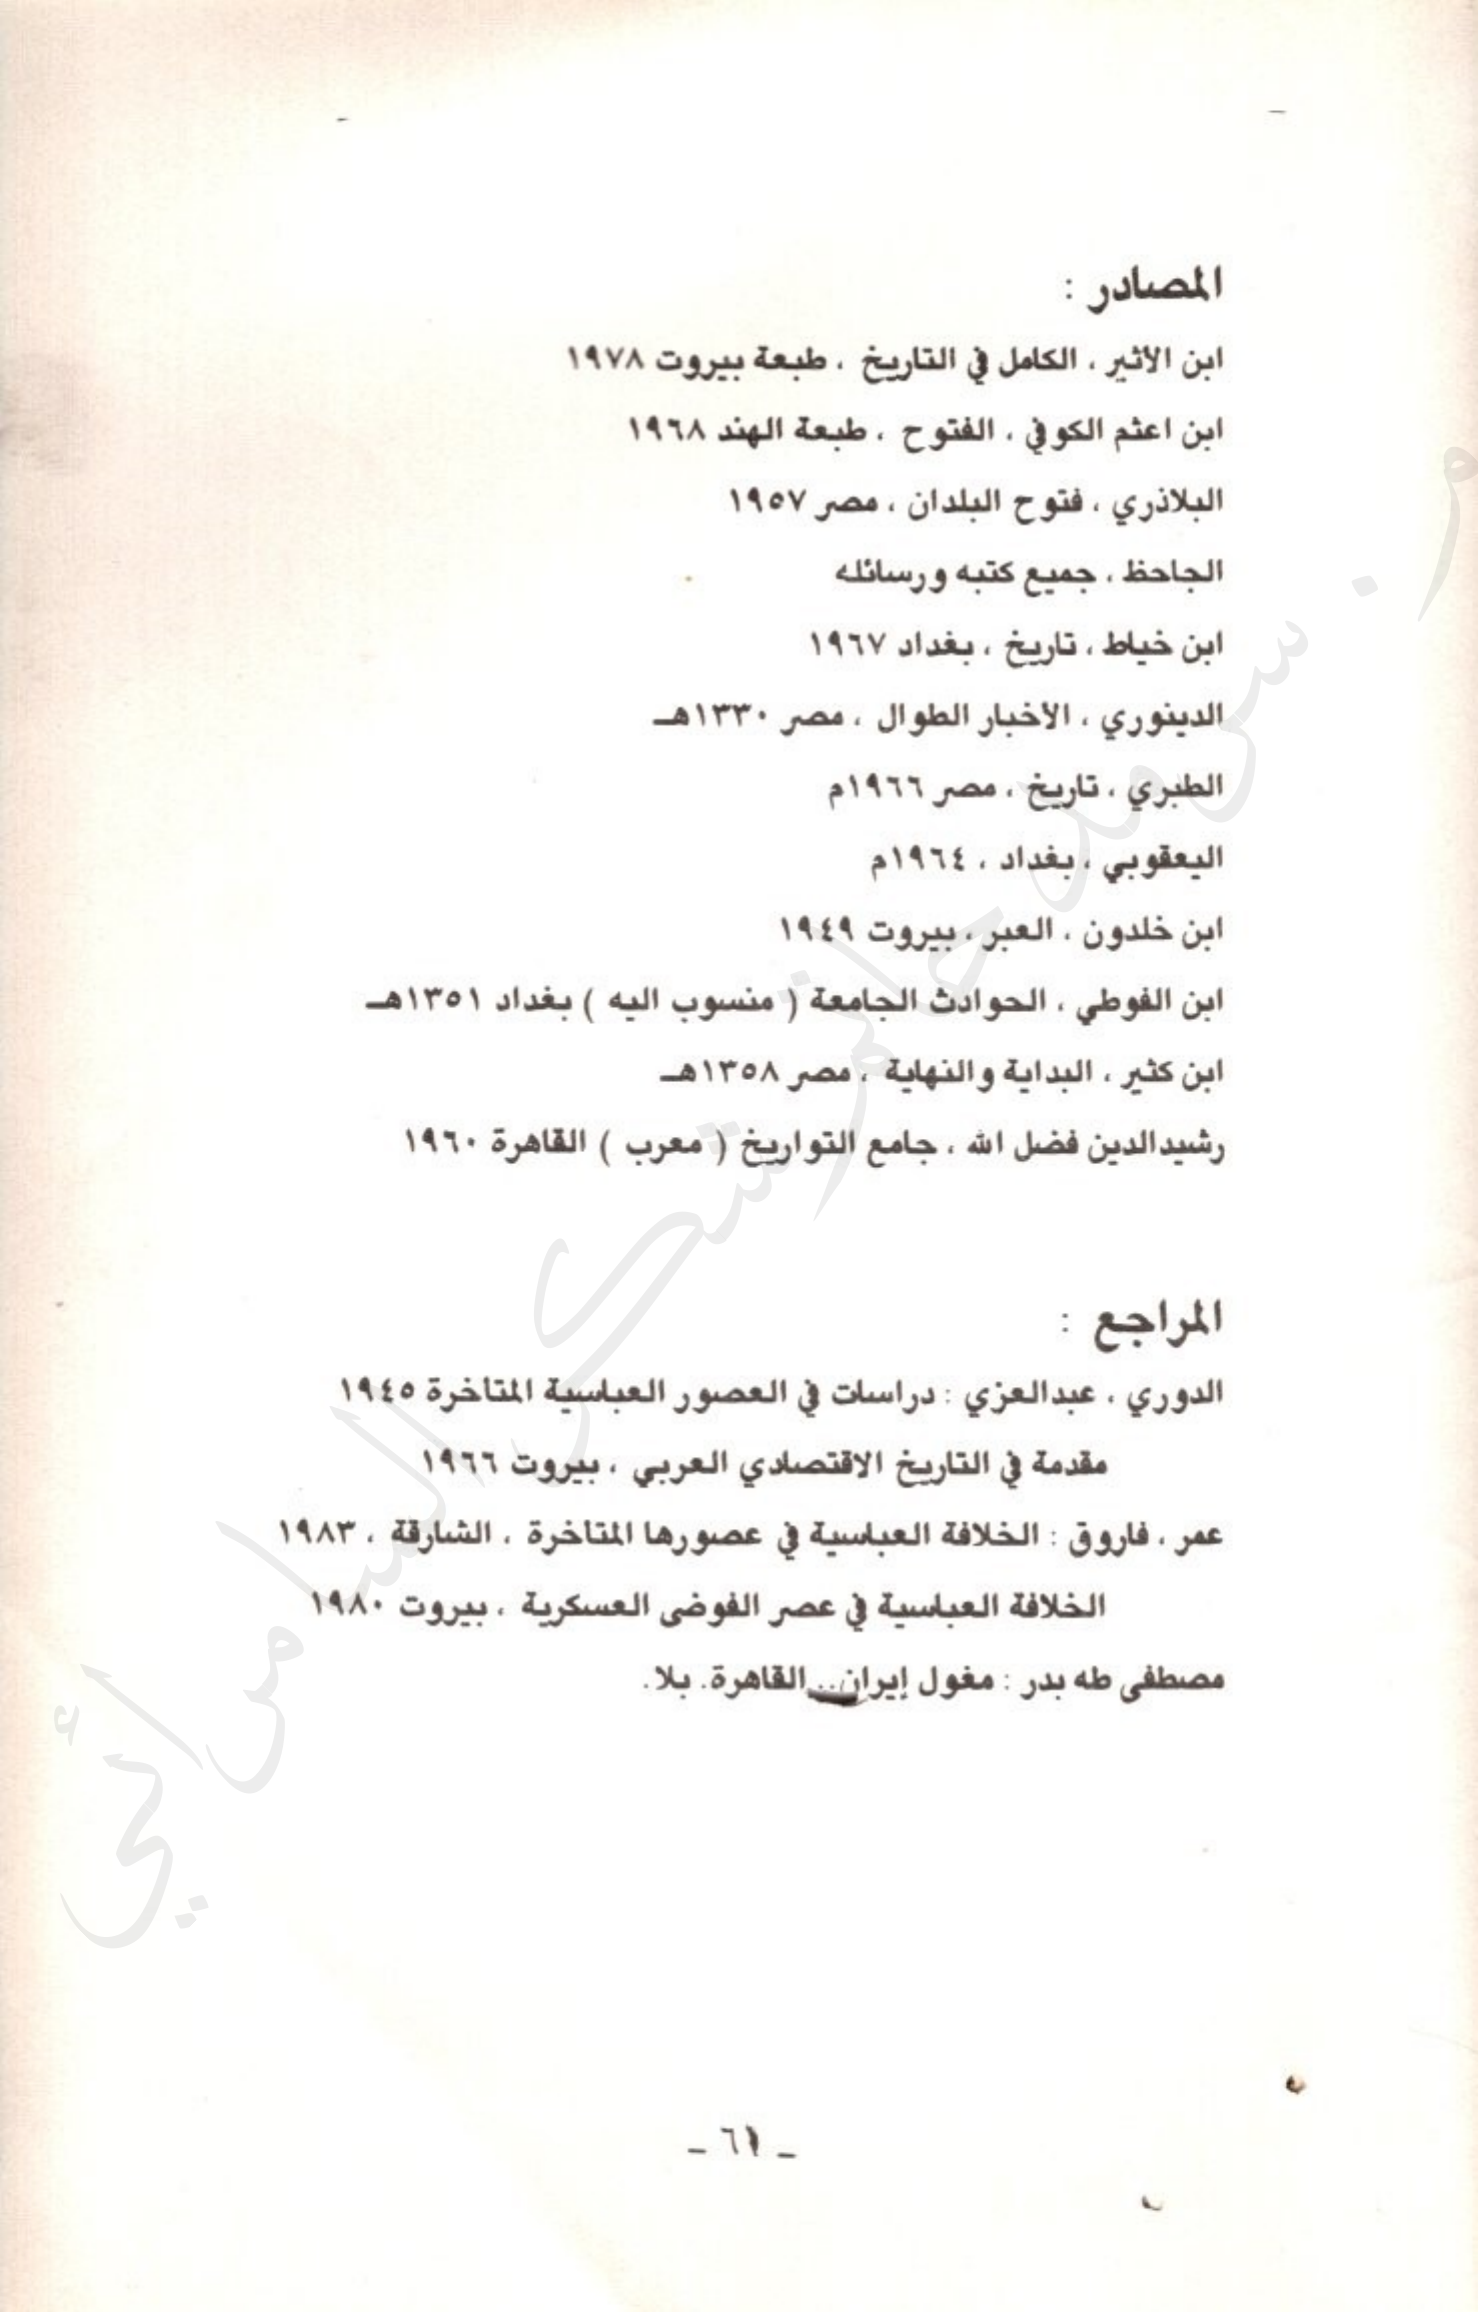 المصادر :
ابن الأثير ، الكامل في التاريخ ، طبعة بيروت ١٩٧٨
ابن اعثم الكوفي ، الفتوح ، طبعة الهند ١٩٦٨
البلاذري ، فتوح البلدان ، مصر ١٩٥٧
الجاحظ ، جميع كتبه ورسائله
ابن خياط ، تاريخ ، بغداد ١٩٦٧
الدينوري ، الأخبار الطوال ، مصر ١٣٣٠هـ
الطبري ، تاريخ ، مصر ١٩٦٦م
اليعقوبي ، بغداد ، ١٩٦٤م
ابن خلدون ، العبر ، بيروت ١٩٤٩
ابن الفوطي ، الحوادث الجامعة ( منسوب اليه ) بغداد ١٣٥١هـ
ابن كثير ، البداية والنهاية ، مصر ١٣٥٨هـ
رشيدالدين فضل الله ، جامع التواريخ ( معرب ) القاهرة ١٩٦٠
المراجع :
الدوري ، عبدالعزي : دراسات في العصور العباسية المتاخرة ١٩٤٥
مقدمة في التاريخ الاقتصادي العربي ، بيروت ١٩٦٦
عمر ، فاروق : الخلافة العباسية في عصورها المتاخرة ، الشارقة ، ١٩٨٣
الخلافة العباسية في عصر الفوضى العسكرية ، بيروت ١٩٨٠
مصطفى طه بدر : مغول إيران.. القاهرة. بلا.
ـ ٦١ ـ